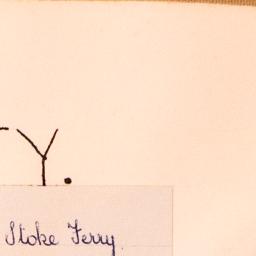 Y.
Stoke Ferry